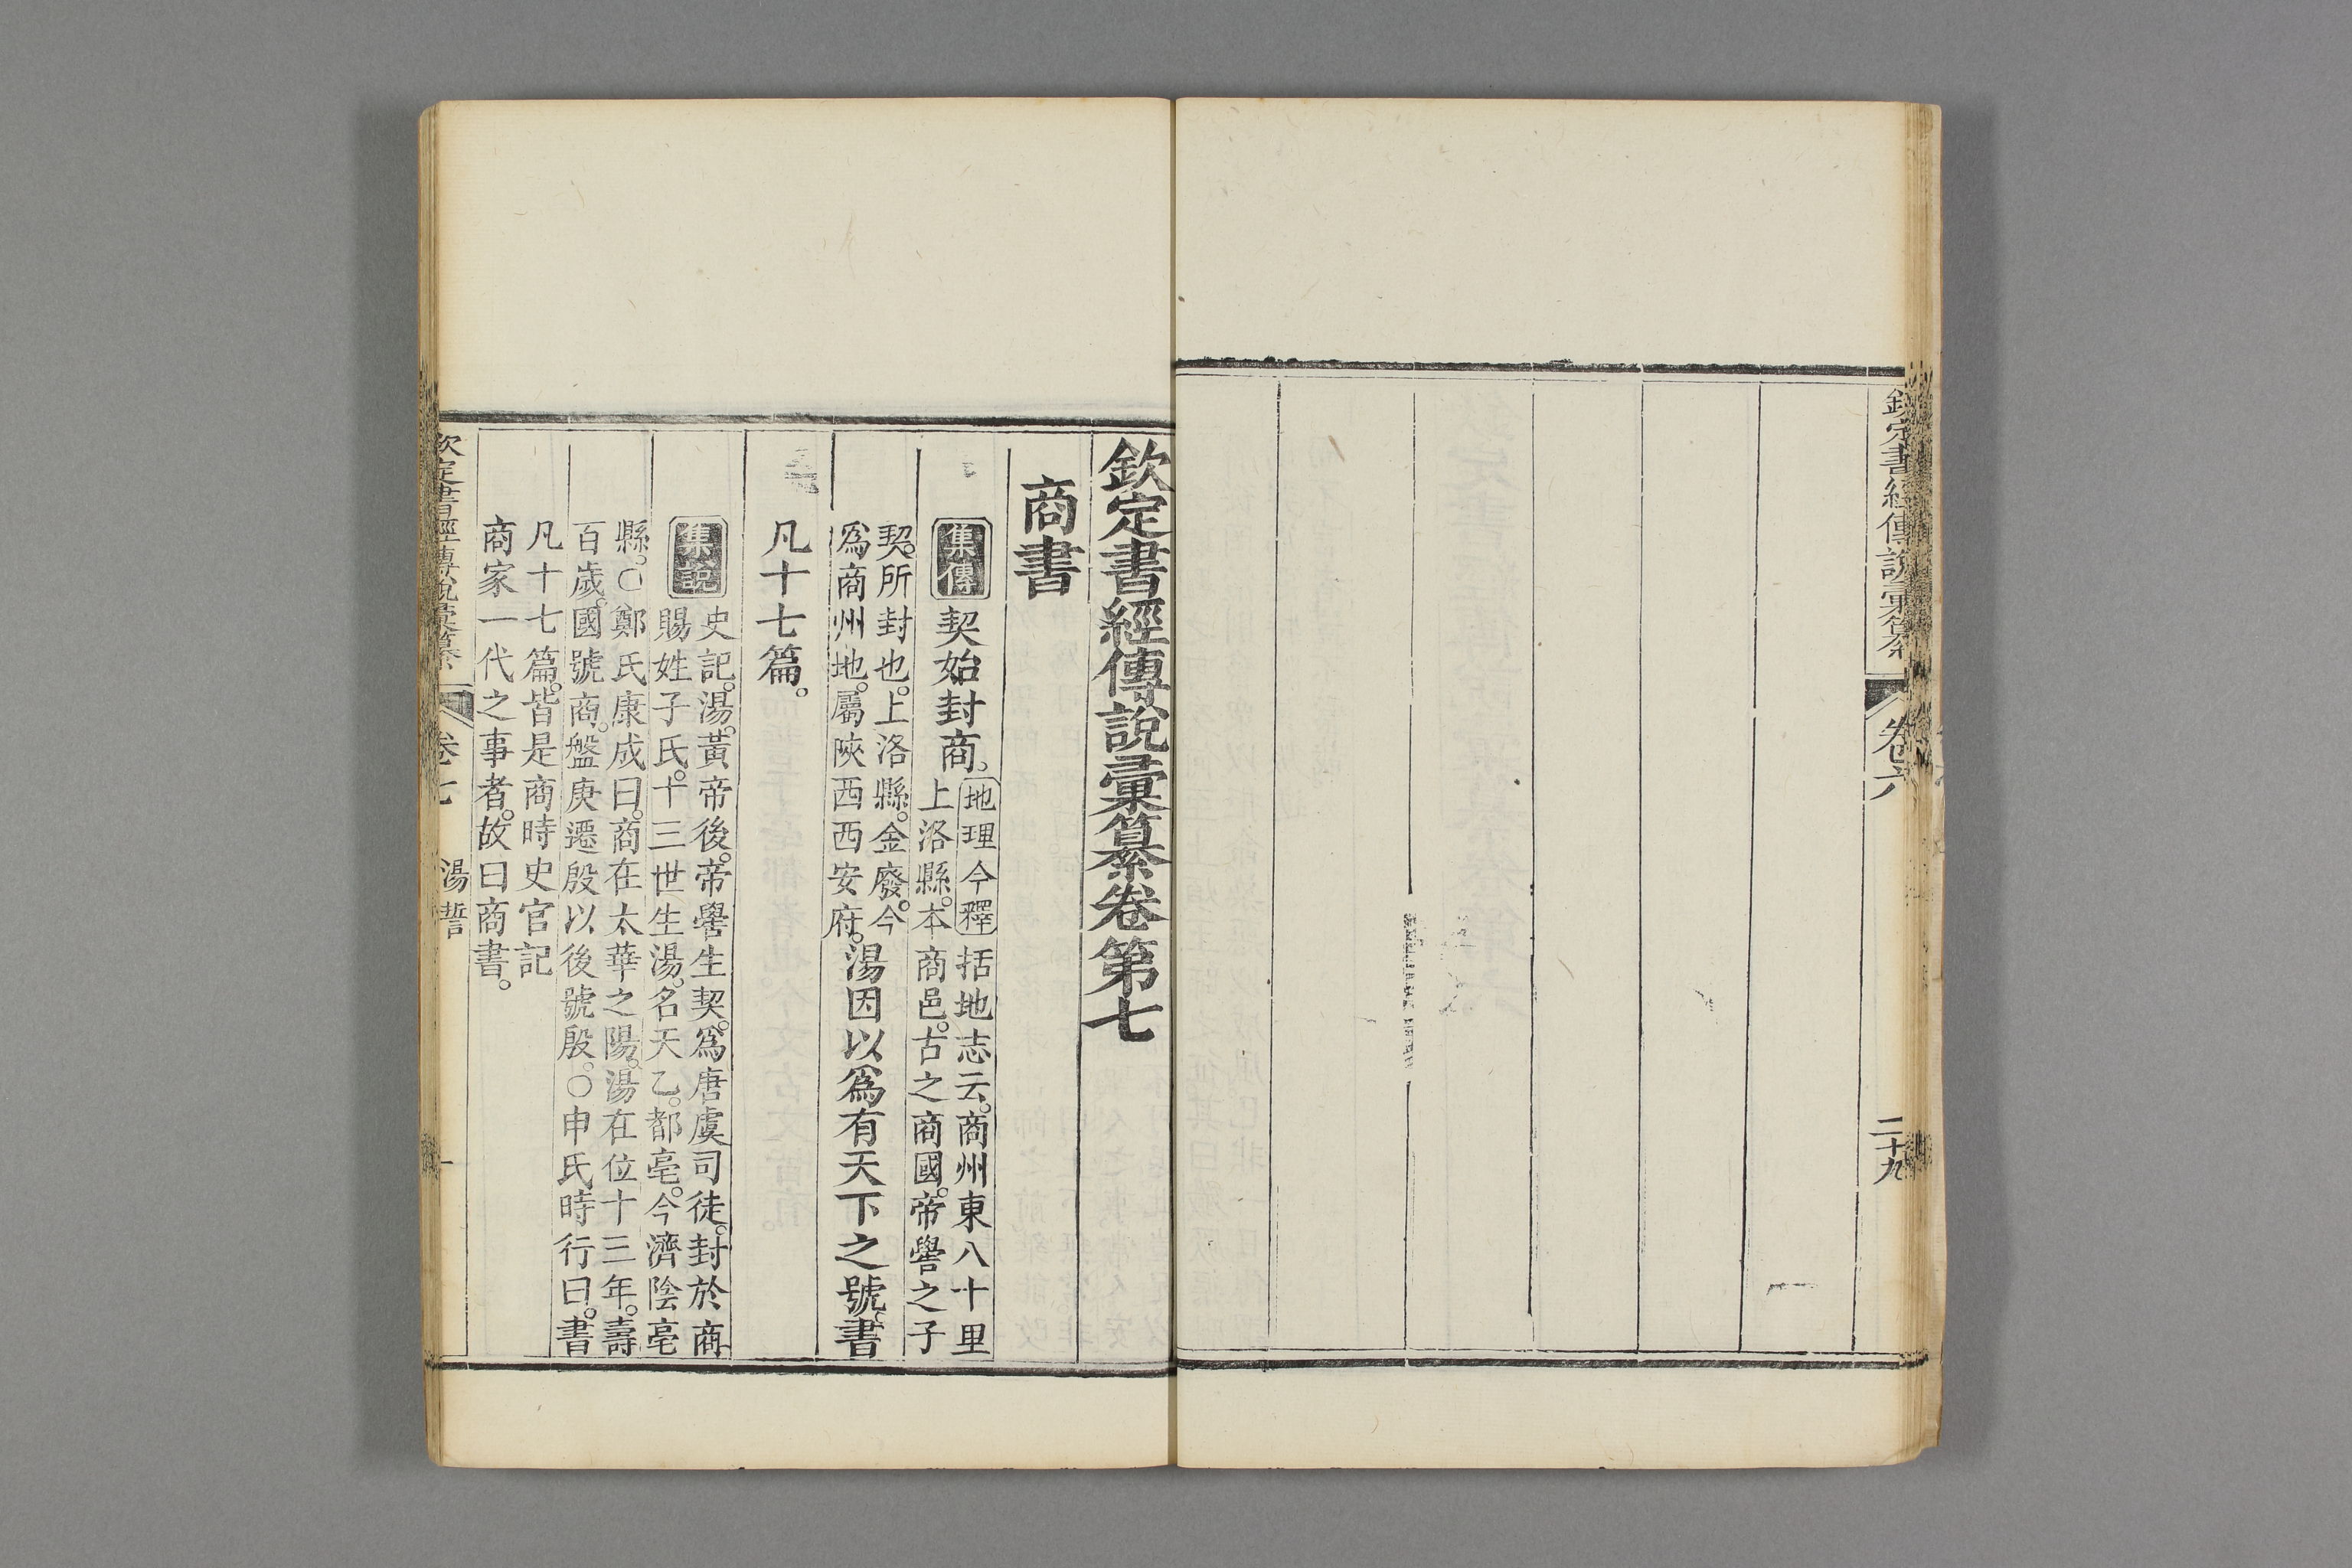 欽定書經傳說彙纂
卷六
二十九
欽定書經傳說彙纂卷第七
商書
集傳
契始封商。
地理今釋
括地志云。商州東八十里
上洛縣。本商邑。古之商國。帝嚳之子
契。所封也。上洛縣。金廢。今
爲商州地。屬陝西西安府。
湯因以爲有天下之號。書
凡十七篇。
集說
史記。湯。黃帝後。帝嚳生契。爲唐虞司徒。封於商
賜姓子氏。十三世生湯。名天乙。都亳。今濟陰亳
縣。○鄭氏康成曰。商在太華之陽。湯在位十三年。壽
百歲。國號商。盤庚遷殷以後號殷。○申氏時行曰。書
凡十七篇。皆是商時史官記
商家一代之事者。故曰商書。
欽定書經傳說彙纂
卷七
湯誓
一